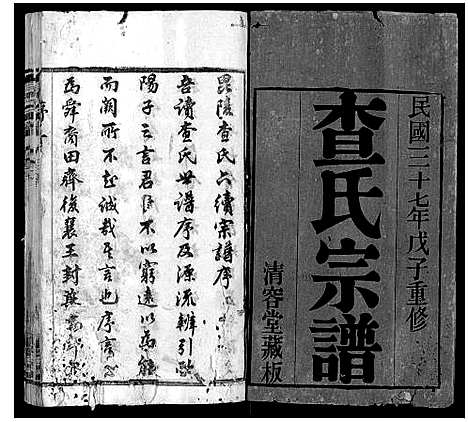 民國三十七年戊子重修
查氏宗譜
清容堂藏板
毘陵查氏六續宗譜序
吾讀查氏世譜序及源流辨引歐
陽子云言君子不以窮遠以為能
而闕所不知誠哉是言也序言
為舜裔田齊後襄王封
序